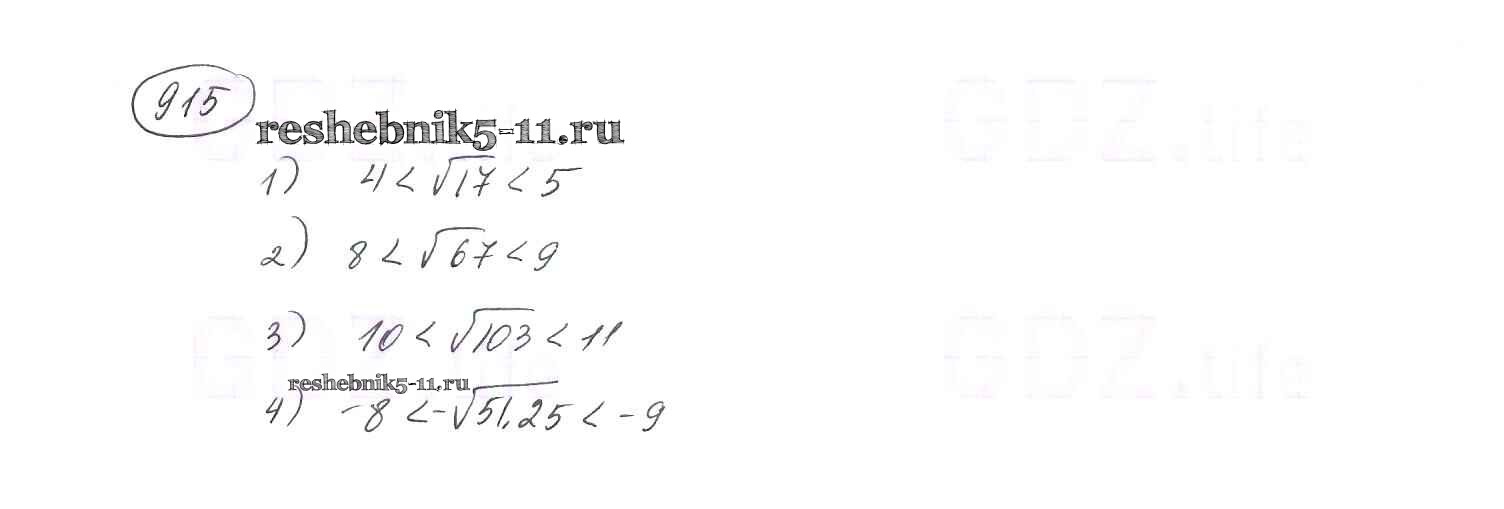 915
reshebnik5-11.ru
1) 4 < √17 < 5
2) 8 < √67 < 9
3) 10 < √103 < 11
reshebnik5-11.ru
4) -8 < -√51,25 < -9
GDZ.life
GDZ.life
GDZ.life
GDZ.life